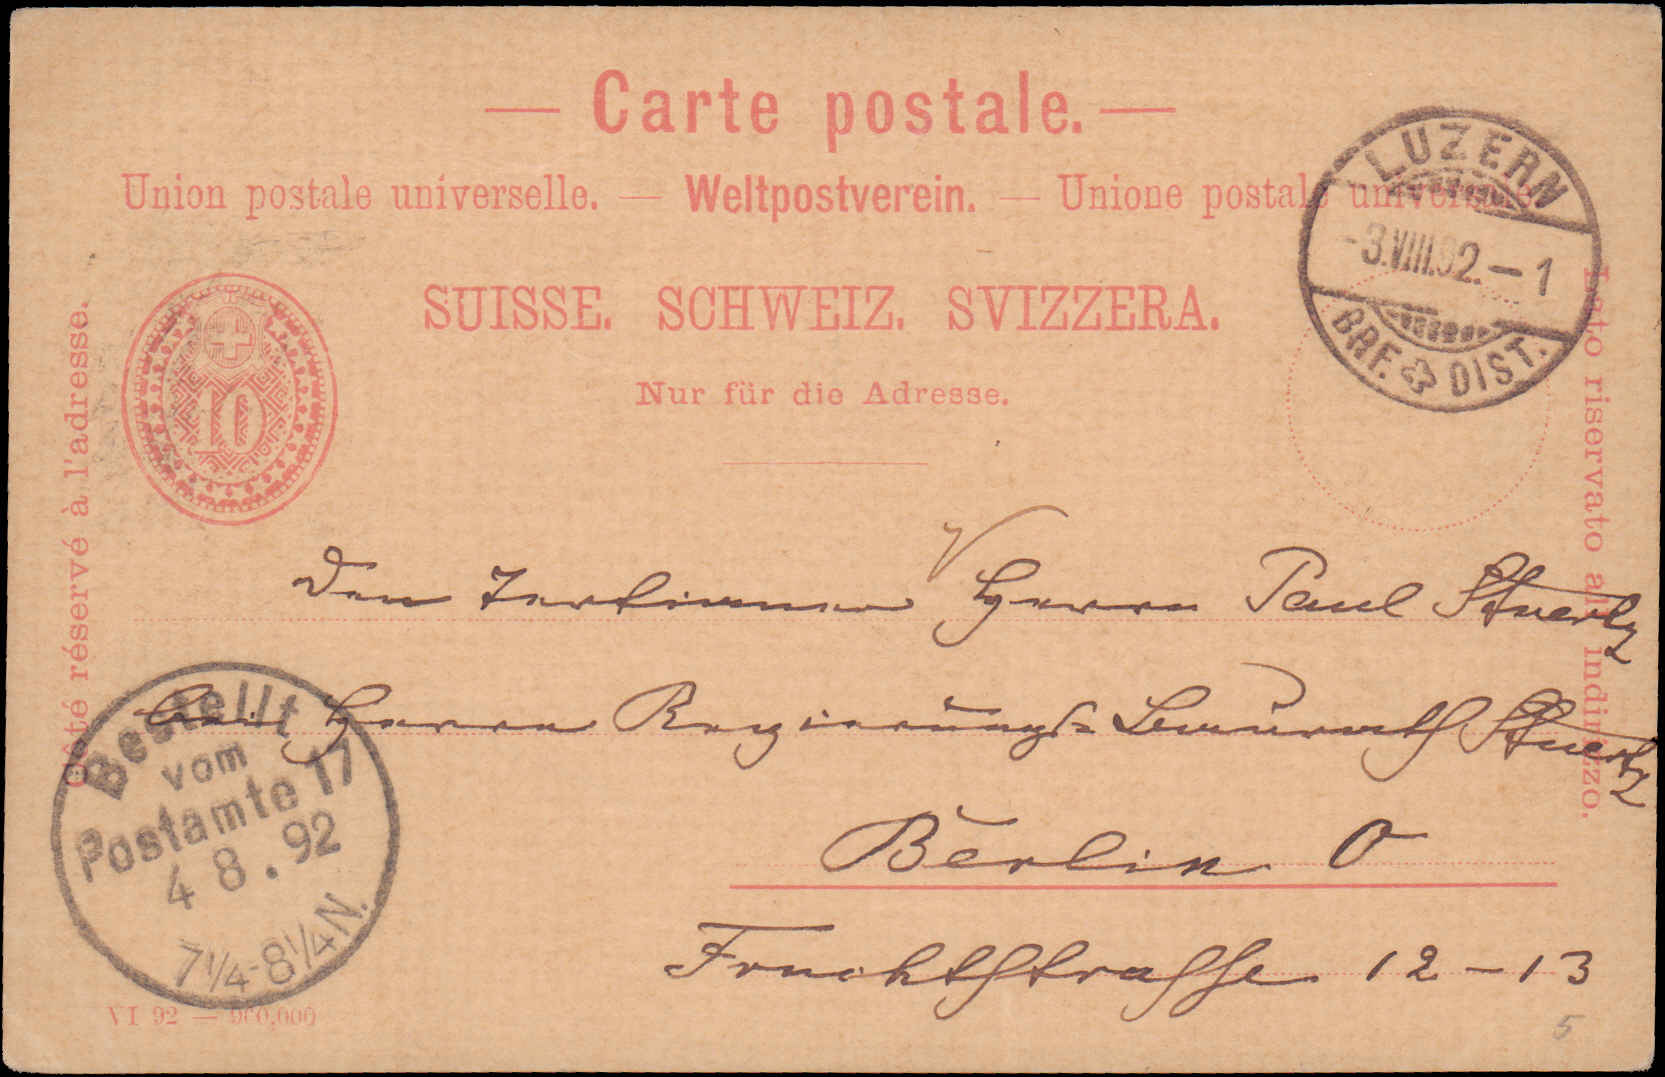 — Carte postale. —
Union postale universelle. — Weltpostverein. — Unione postale universale.
SUISSE. SCHWEIZ. SVIZZERA.
Nur für die Adresse.
Côté réservé à l'adresse.
Lato riservato all' indirizzo.
10
LUZERN
-3.VIII.92.-1
BRF. DIST.
Den Tertianer Herrn Paul Stuertz
bei Herrn Regierungs= Baurath Stuertz
Berlin O
Fruchtstrasse 12-13
Bestellt
vom
Postamte 17
4 8. 92
7 1/4-8 1/4 N.
VI 92 — 900,000
5